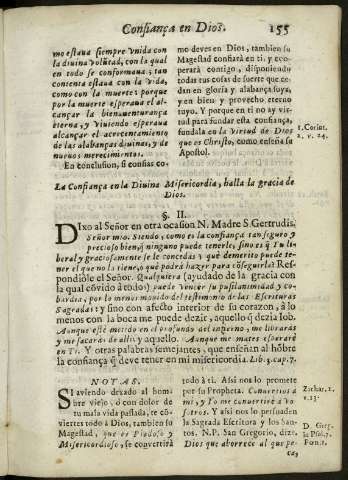 Confiança en Dios. 155
mo estaua siempre vnida con
la diuina volũtad, con la qual
en todo se conformaua; tan
contenta estaua con la vida,
como con la muerte: porque
por la muerte esperaua el al-
cançar la bienauenturança
eterna, y viuiendo esperaua
alcançar el acrecentamiento
de las alabanças diuinas, y de
nueuos merecimientos.
En conclusion, si confias co-
mo deves en Dios, tambien su
Magestad confiará en ti, y co-
operará contigo, disponiendo
todas tus cosas de suerte que ce-
dan en gloria y alabança suya,
y en bien y provecho eterno
tuyo. Y porque en ti no ay vir-
tud para fundar esta confiança,
fundala en la Virtud de Dios
que es Christo, como enseña su
Apostol.
1. Corint.
1. v. 24.
La Confiança en la Diuina Misericordia, halla la gracia de
Dios.
§. II.
DIxo al Señor en otra ocasion N. Madre S. Gertrudis.
Señor mio. Siendo, como es la confiança tan seguro y
precioso bien, q̃ ninguno puede tenerle, sino es q̃ Tu li-
beral y graciosamente se le concedas y què demerito puede te-
ner el que no la tiene, o què podrà hazer para cõseguirla? Res-
pondióle el Señor. Qualquiera (ayudado de la gracia con
la qual cõvido à todos) puede vencer su pusilanimidad y co-
bardia, por lo menos mouido del testimonio de las Escrituras
Sagradas: y sino con afecto interior de su corazon, à lo
menos con la boca me puede dezir, aquello q̃ dezia Iob.
Aunque esté metido en el profundo del infierno, me libraràs
y me sacaràs de alli: y aquello. Aunque me mates esperaré
en Ti. Y otras palabras semejantes, que enseñan al hõbre
la confiança q̃ deve tener en mi misericordia. Lib. 3. cap. 7.
NOTAS.
SI aviendo dexado al hom-
bre viejo, ó con dolor de
tu mala vida passada, te có-
viertes todo à Dios, tambien su
Magestad, que es Piadoso y
Misericordioso, se convertirà
todo à ti. Assi nos lo promete
por su Propheta. Convertios à
mi, y Yo me convertiré à Vo-
sotros. Y assi nos lo persuaden
la Sagrada Escritura y los San-
tos. N. P. San Gregorio, dize.
Dios que aborrece al que pe-
Zachar. 1.
v. 13.
D. Greg.
in Psal. 7.
Pœn. 1.